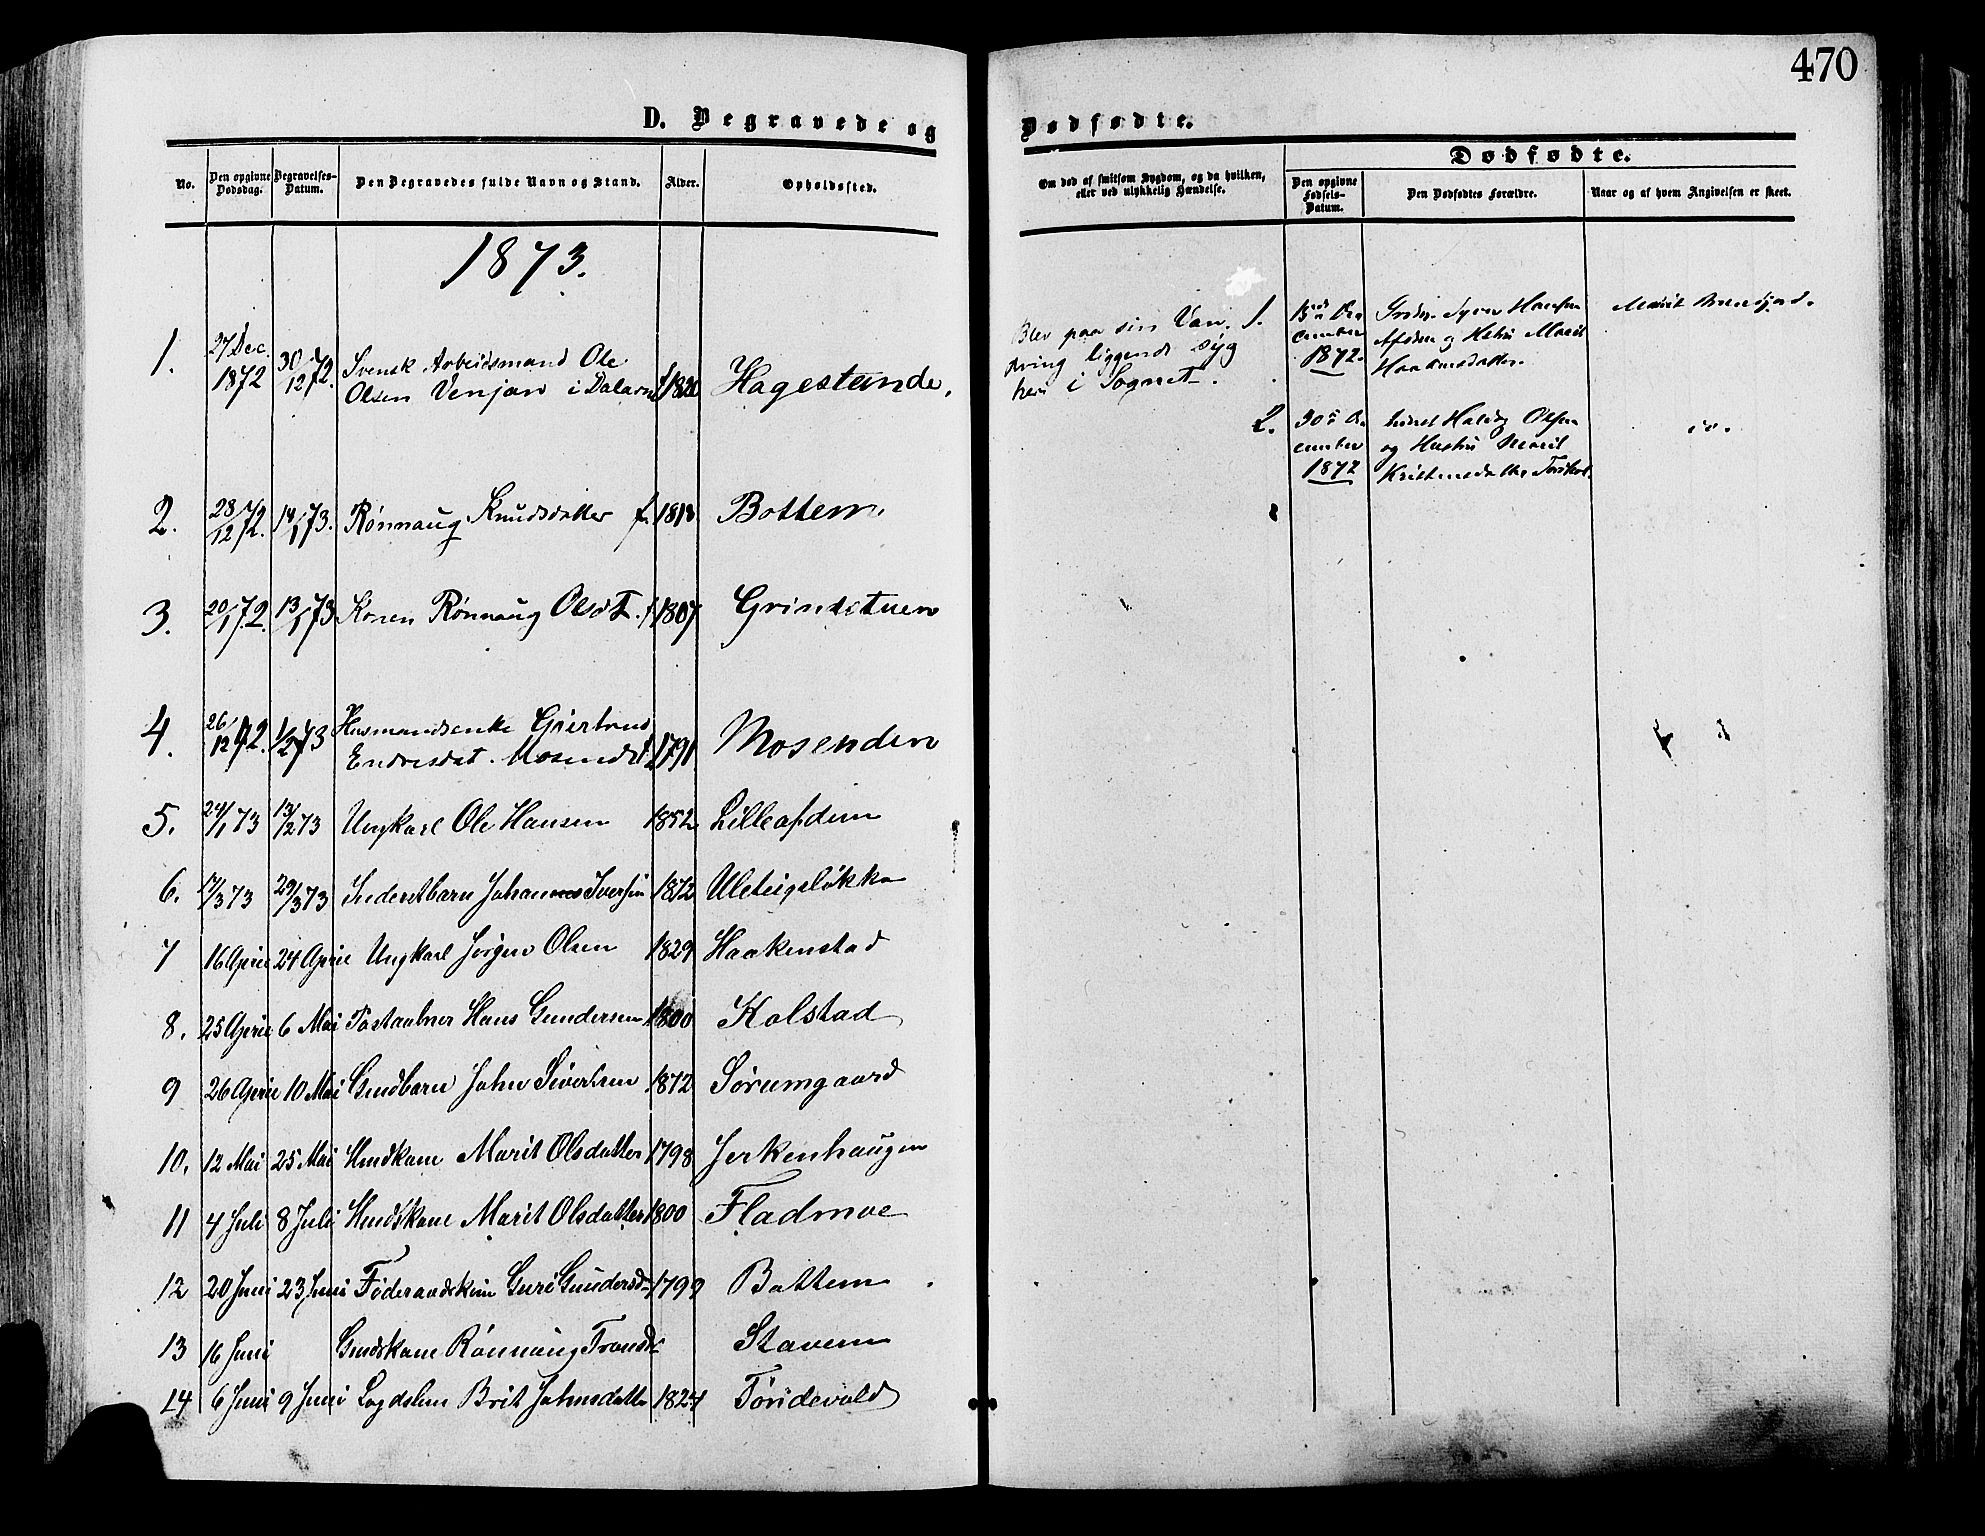 470
D. Begravede og
Dødfødte.
No.
Den opgivne Dødsdag.
Begravelses-Datum.
Den Begravedes fulde Navn og Stand.
Alder.
Opholdssted.
Om død af smitsom Sygdom, og da hvilken,
eller ved ulykkelig Hændelse.
Dødfødte.
Den opgivne Fødsels-Datum.
Den Dødfødtes Forældre.
Naar og af hvem Angivelsen er skeet.
1873.
1. 27 Dec. 1872 30/12 72. Svensk Arbeidsmand Ole
Olsen Venjan i Dalarne f 1820 Hagestande.
Blev paa sin Van-
dring liggende syg
her i Sognet.
1. December 1872. Hansen
og Marit
Marit
2. 30 December 1872 Olsen
og Hustru Marit
Kristensdatter
do.
2. 28/12 72. 14/1 73. Rønnaug Knudsdatter f. 1813 Bottem.
3. 20/1 72. 13/1 73 Konen Rønnaug Olsdt. f 1807 Grindstuen
4. 26/12 72. 1/2 73 Husmandsenke Giertrud
Endresdat. Mosend. f 1791 Mosenden
5. 24/1 73 13/2 73 Ungkarl Ole Hansen 1852 Lilleafdem
6. 17/3 73 29/3 73 Inderstbarn Johannes Iversen 1872 Uleteigsløkka
7 16 April 24 April Ungkarl Jørgen Olsen 1829 Haakenstad
8. 25 April 6 Mai Hans Gundersen 1800 Kolstad
9 26 April 10 Mai Gmdbarn John Sivertsen 1872 Sørumgaard
10. 12 Mai 25 Mai Hmdkone Marit Olsdatter 1798 Jerkenhaugen
11 4 Juli 8 Juli Hmdskone Marit Olsdatter 1800 Fladmoe
12 20 Juni 23 Juni Føderaadskone Guri Gundersd. 1799 Bottem
13 16 Juni Gmdskone Rønnaug Trondsd. Stavem
14 6 Juni 9 Juni Logdslem Brit Johnsdatter 1824 Tøndevold